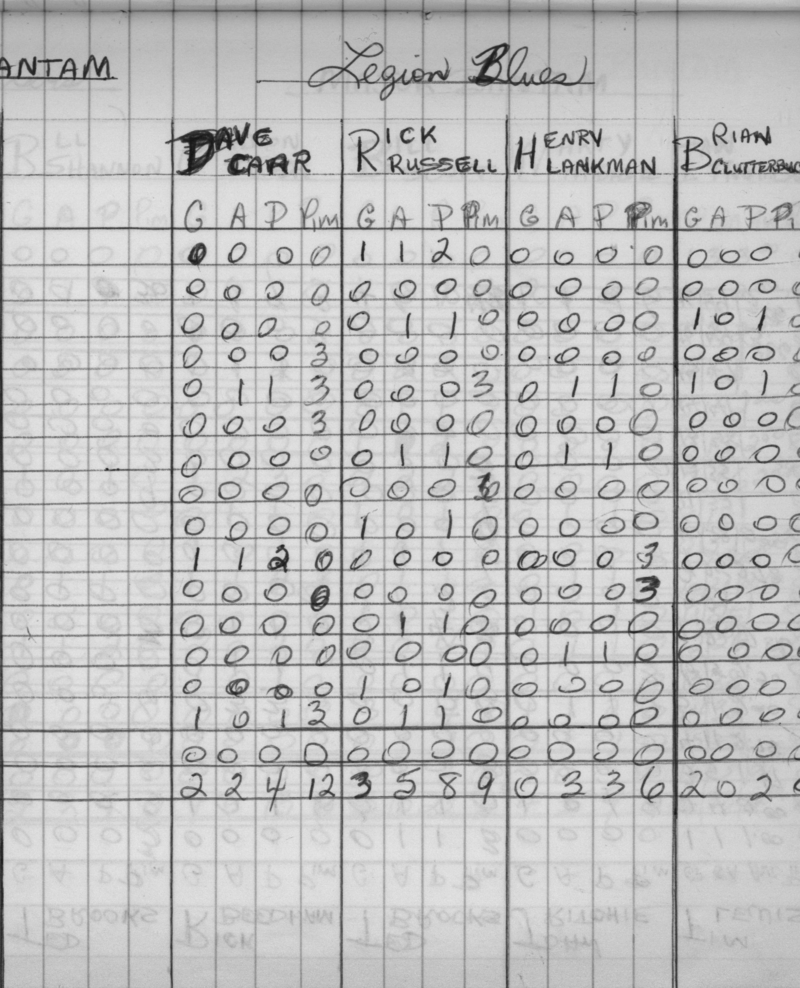 ANTAM Legion Blues
DAVE CARR RICK RUSSELL HENRY LANKMAN BRIAN CLUTTERBUC
G A P Pim G A P Pim G A P Pim G A P Pi
0 0 0 0 1 1 2 0 0 0 0 0 0 0 0
0 0 0 0 0 0 0 0 0 0 0 0 0 0 0 0
0 0 0 0 0 1 1 0 0 0 0 0 1 0 1 0
0 0 0 3 0 0 0 0 0 0 0 0 0 0 0 0
0 1 1 3 0 0 0 3 0 1 1 0 1 0 1 0
0 0 0 3 0 0 0 0 0 0 0 0 0 0 0 0
0 0 0 0 0 1 1 0 0 1 1 0 0 0 0 0
0 0 0 0 0 0 0 0 0 0 0 0 0 0 0
0 0 0 0 1 0 1 0 0 0 0 0 0 0 0 0
1 1 2 0 0 0 0 0 0 0 0 3 0 0 0 0
0 0 0 0 0 0 0 0 0 0 3 0 0 0
0 0 0 0 0 1 1 0 0 0 0 0 0 0 0 0
0 0 0 0 0 0 0 0 0 1 1 0 0 0 0 0
0 0 0 0 1 0 1 0 0 0 0 0 0 0 0
1 0 1 3 0 1 1 0 0 0 0 0 0 0 0 0
0 0 0 0 0 0 0 0 0 0 0 0 0 0 0 0
2 2 4 12 3 5 8 9 0 3 3 6 2 0 2